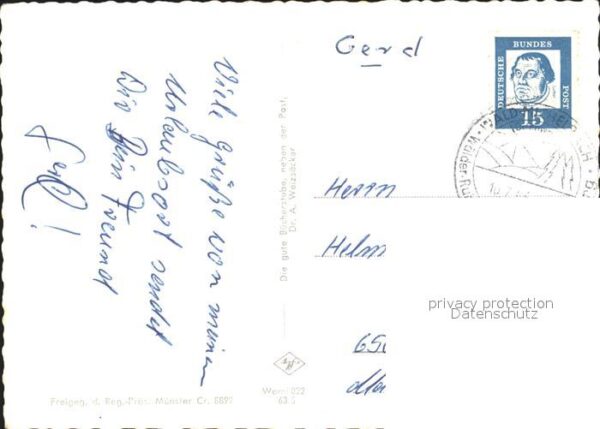 Viele Grüße von meinem
Urlaubsort sendet
Dir Dein Freund
Gerd!
Gerd
DEUTSCHE
BUNDES
POST
15
Die gute Bücherstube, neben der Post,
Dr. A. Weizsäcker
Herrn
Helm
65
privacy protection
Datenschutz
Freigeg. d. Reg.-Präs. Münster Cr. 8899